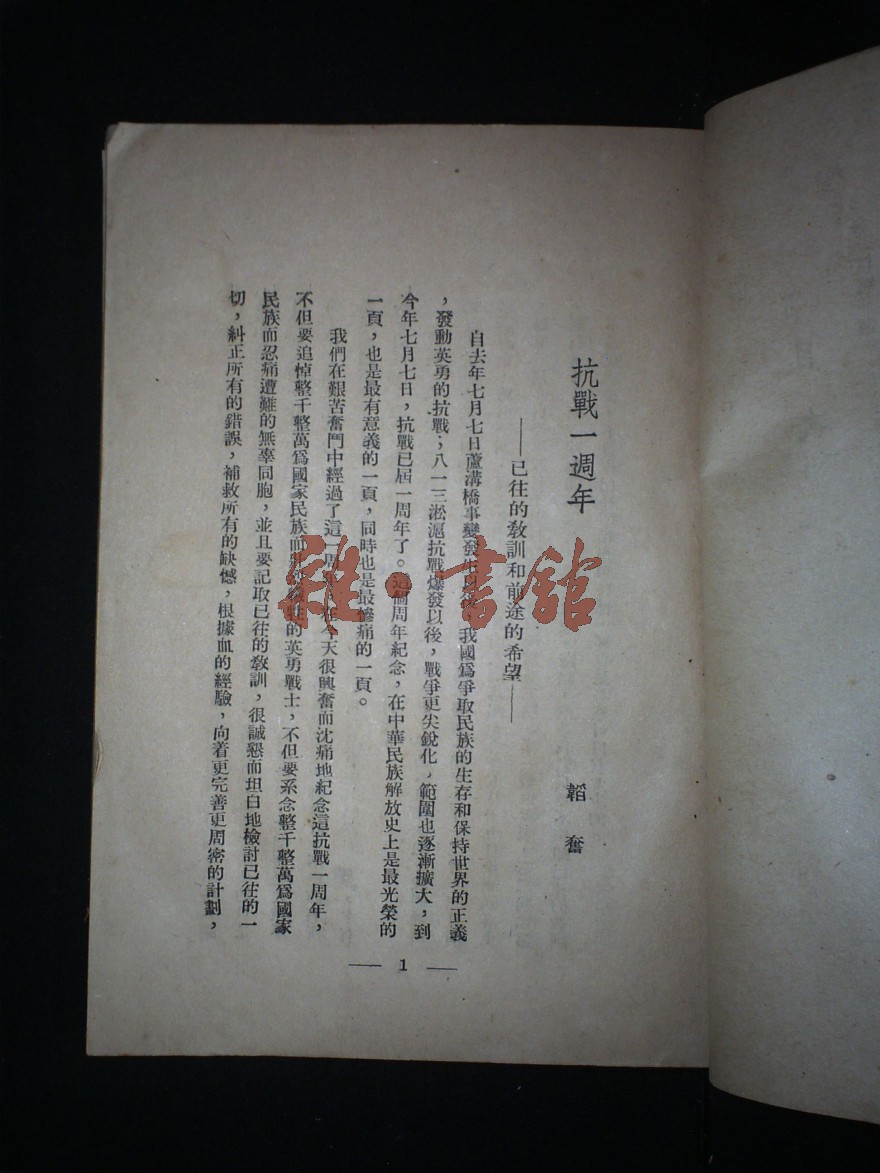 抗戰一週年
——已往的教訓和前途的希望——
韜奮
自去年七月七日蘆溝橋事變發生以後，我國爲爭取民族的生存和保持世界的正義
，發動英勇的抗戰；八一三淞滬抗戰爆發以後，戰爭更尖銳化，範圍也逐漸擴大，到
今年七月七日，抗戰已屆一周年了。這個周年紀念，在中華民族解放史上是最光榮的
一頁，也是最有意義的一頁，同時也是最慘痛的一頁。
我們在艱苦奮鬥中經過了這一周年，在今天很興奮而沈痛地紀念這抗戰一周年，
不但要追悼整千整萬爲國家民族而犧牲的英勇戰士，不但要系念整千整萬爲國家
民族而忍痛遭難的無辜同胞，並且要記取已往的教訓，很誠懇而坦白地檢討已往的一
切，糾正所有的錯誤，補救所有的缺憾，根據血的經驗，向着更完善更周密的計劃，
— 1 —
雜·書館